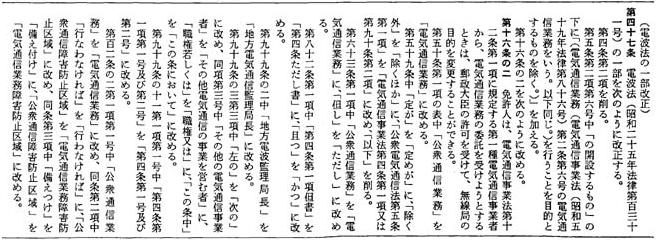 （電波法の一部改正）
第四十七条　電波法（昭和二十五年法律第百三十
一号）の一部を次のように改正する。
第四条第二項を削る。
第五条第二項第六号中「の開設するもの」の
下に「（電気通信業務（電気通信事業法（昭和五
十九年法律第八十六号）第二条第六号の電気通
信業務をいう。以下同じ。）を行うことを目的と
するものを除く。）」を加える。
第十六条の二を次のように改める。
第十六条の二　免許人は、電気通信事業法第十
二条第一項に規定する第一種電気通信事業者
から、電気通信業務の委託を受けようとする
ときは、郵政大臣の許可を受けて、無線局の
目的を変更することができる。
第五十条第一項の表中「公衆通信業務」を
「電気通信業務」に改める。
第五十九条中「定が」を「定めが」に、「除く
外」を「除くほか」に、「公衆電気通信法第五条
第一項」を「電気通信事業法第四条第一項又は
第九十条第二項」に改め、「以下」を削る。
第六十三条第一項中「公衆通信業務」を「電
気通信業務」に、「但し」を「ただし」に改め
る。
第八十二条第一項中「第四条第一項但書」を
「第四条ただし書」に、「且つ」を「かつ」に改
める。
第九十九条の二中「地方電波監理局長」を
「地方電気通信監理局長」に改める。
第九十九条の三第三項中「左の」を「次の」
に改め、同項第三号中「その他の電気通信事業
者」を「その他電気通信の事業を営む者」に、
「職権若しくは」を「職権又は」に、「この条中」
を「この条において」に改める。
第九十九条の十一第一項第一号中「第四条第
一項第一号及び第二号」を「第四条第一号及び
第二号」に改める。
第百二条の二第一項第一号中「公衆通信業
務」を「電気通信業務」に改め、同条第二項中
「行なわなければ」を「行わなければ」に、「公
衆通信障害防止区域」を「電気通信業務障害防
止区域」に改め、同条第三項中「備えつけ」を
「備え付け」に、「公衆通信障害防止区域」を
「電気通信業務障害防止区域」に改める。